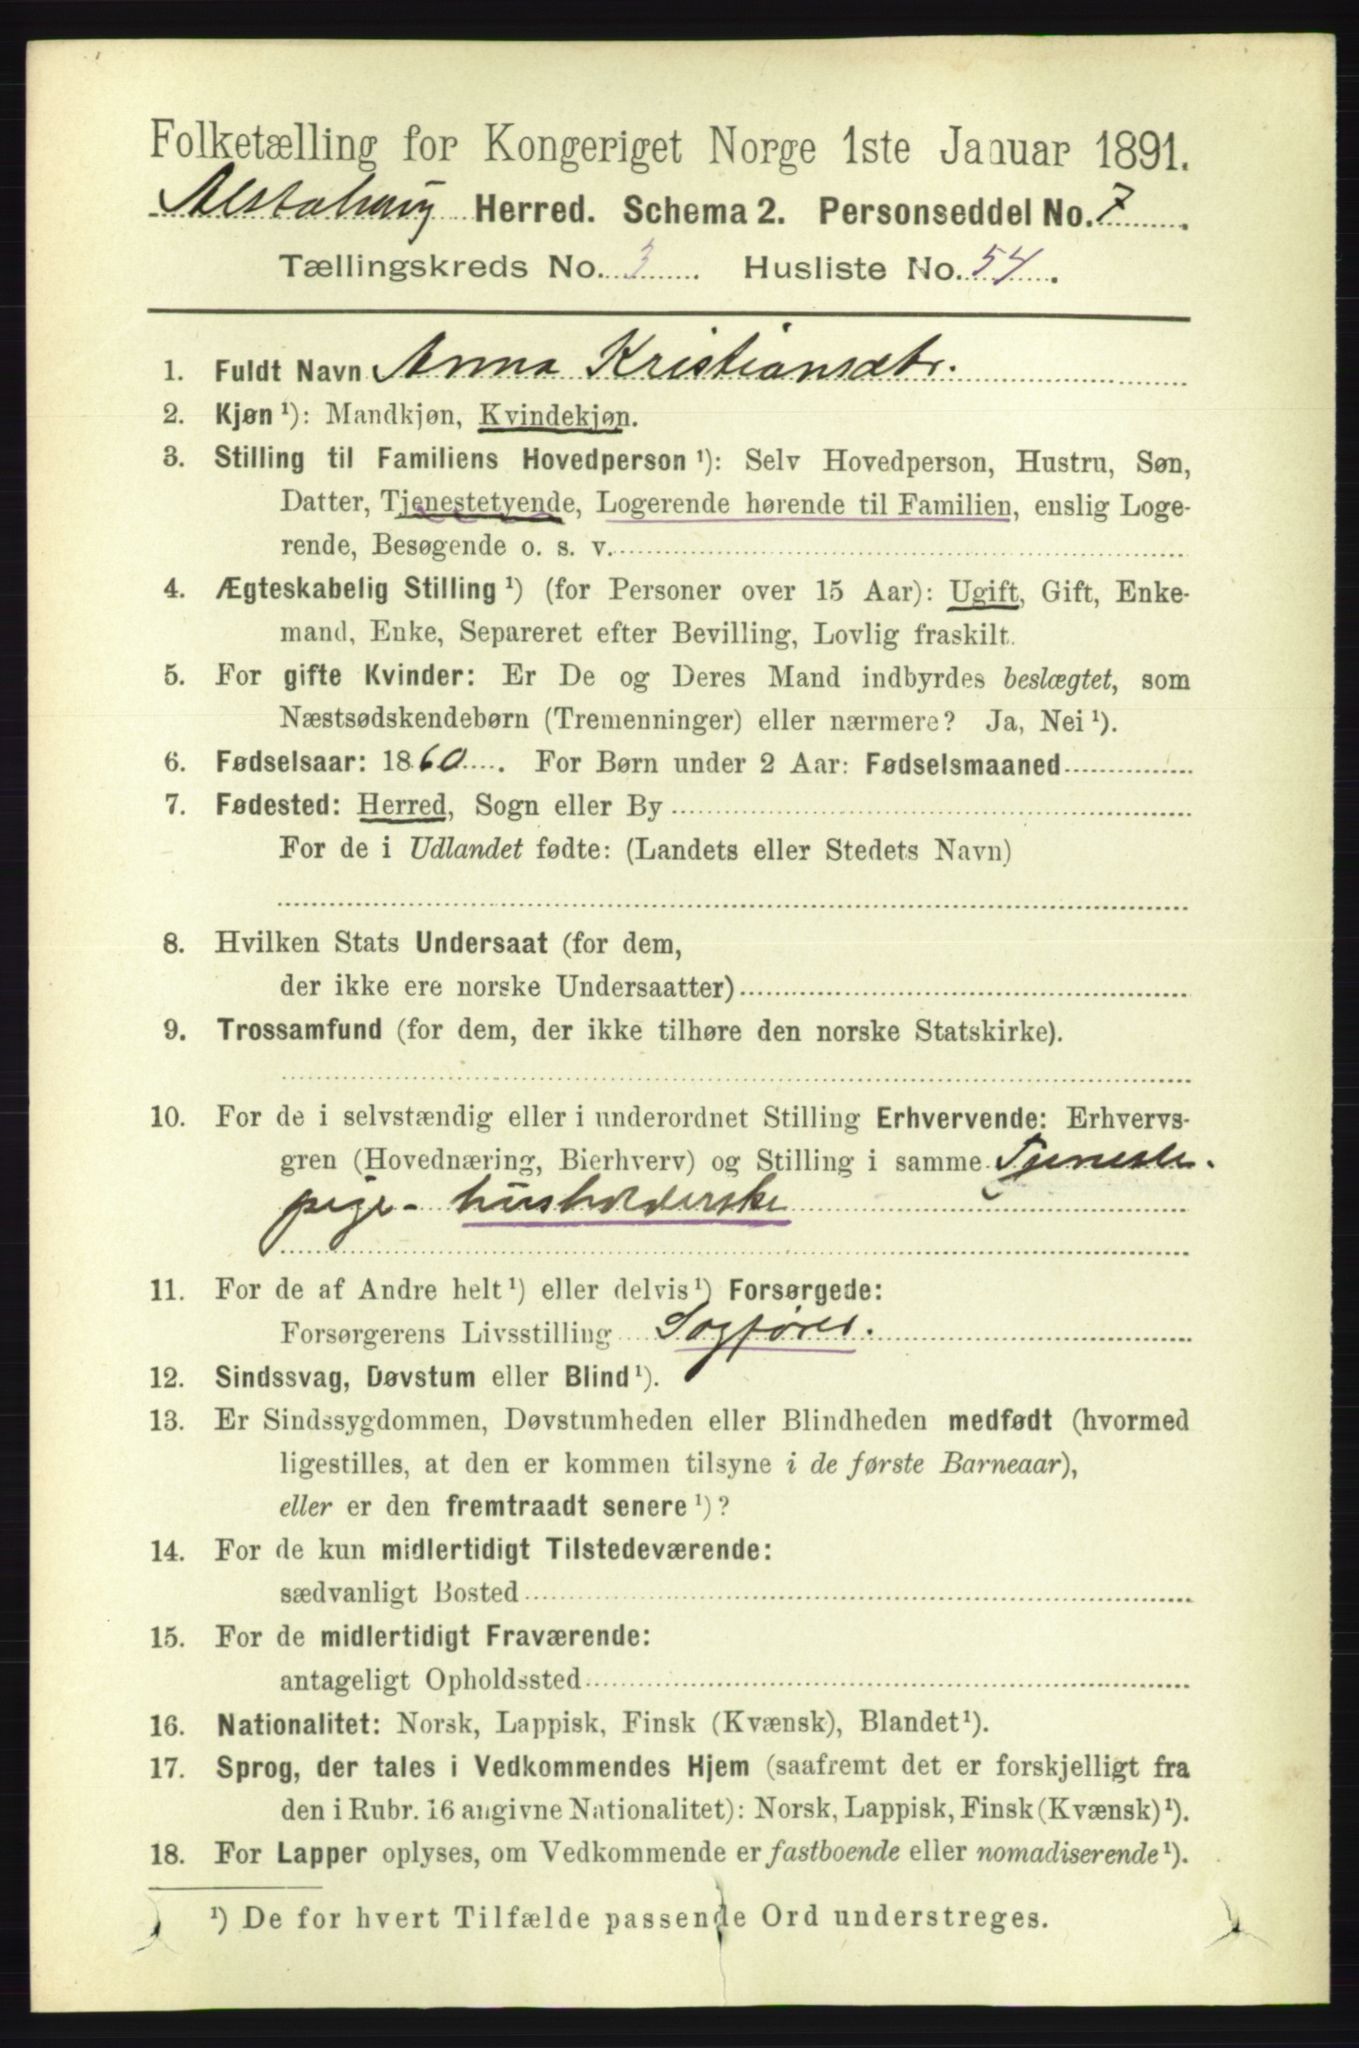 Folketælling for Kongeriget Norge 1ste Januar 1891.
Alstahaug Herred. Schema 2. Personseddel No. 7
Tællingskreds No. 3 Husliste No. 54.
1. Fuldt Navn Anna Kristiansdtr.
2. Kjøn ¹): Mandkjøn, Kvindekjøn.
3. Stilling til Familiens Hovedperson ¹): Selv Hovedperson, Hustru, Søn,
Datter, Tjenestetyende, Logerende hørende til Familien, enslig Loge-
rende, Besøgende o. s. v.
4. Ægteskabelig Stilling ¹) (for Personer over 15 Aar): Ugift, Gift, Enke-
mand, Enke, Separeret efter Bevilling, Lovlig fraskilt.
5. For gifte Kvinder: Er De og Deres Mand indbyrdes beslægtet, som
Næstsødskendebørn (Tremenninger) eller nærmere? Ja, Nei ¹).
6. Fødselsaar: 1860. For Børn under 2 Aar: Fødselsmaaned
7. Fødested: Herred, Sogn eller By
For de i Udlandet fødte: (Landets eller Stedets Navn)
8. Hvilken Stats Undersaat (for dem,
der ikke ere norske Undersaatter)
9. Trossamfund (for dem, der ikke tilhøre den norske Statskirke).
10. For de i selvstændig eller i underordnet Stilling Erhvervende: Erhvervs-
gren (Hovednæring, Bierhverv) og Stilling i samme Tjeneste-
pige - husholderske
11. For de af Andre helt ¹) eller delvis ¹) Forsørgede:
Forsørgerens Livsstilling Sagfører.
12. Sindssvag, Døvstum eller Blind ¹).
13. Er Sindssygdommen, Døvstumheden eller Blindheden medfødt (hvormed
ligestilles, at den er kommen tilsyne i de første Barneaar),
eller er den fremtraadt senere ¹)?
14. For de kun midlertidigt Tilstedeværende:
sædvanligt Bosted
15. For de midlertidigt Fraværende:
antageligt Opholdssted
16. Nationalitet: Norsk, Lappisk, Finsk (Kvænsk), Blandet ¹).
17. Sprog, der tales i Vedkommendes Hjem (saafremt det er forskjelligt fra
den i Rubr. 16 angivne Nationalitet): Norsk, Lappisk, Finsk (Kvænsk) ¹).
18. For Lapper oplyses, om Vedkommende er fastboende eller nomadiserende ¹).
¹) De for hvert Tilfælde passende Ord understreges.